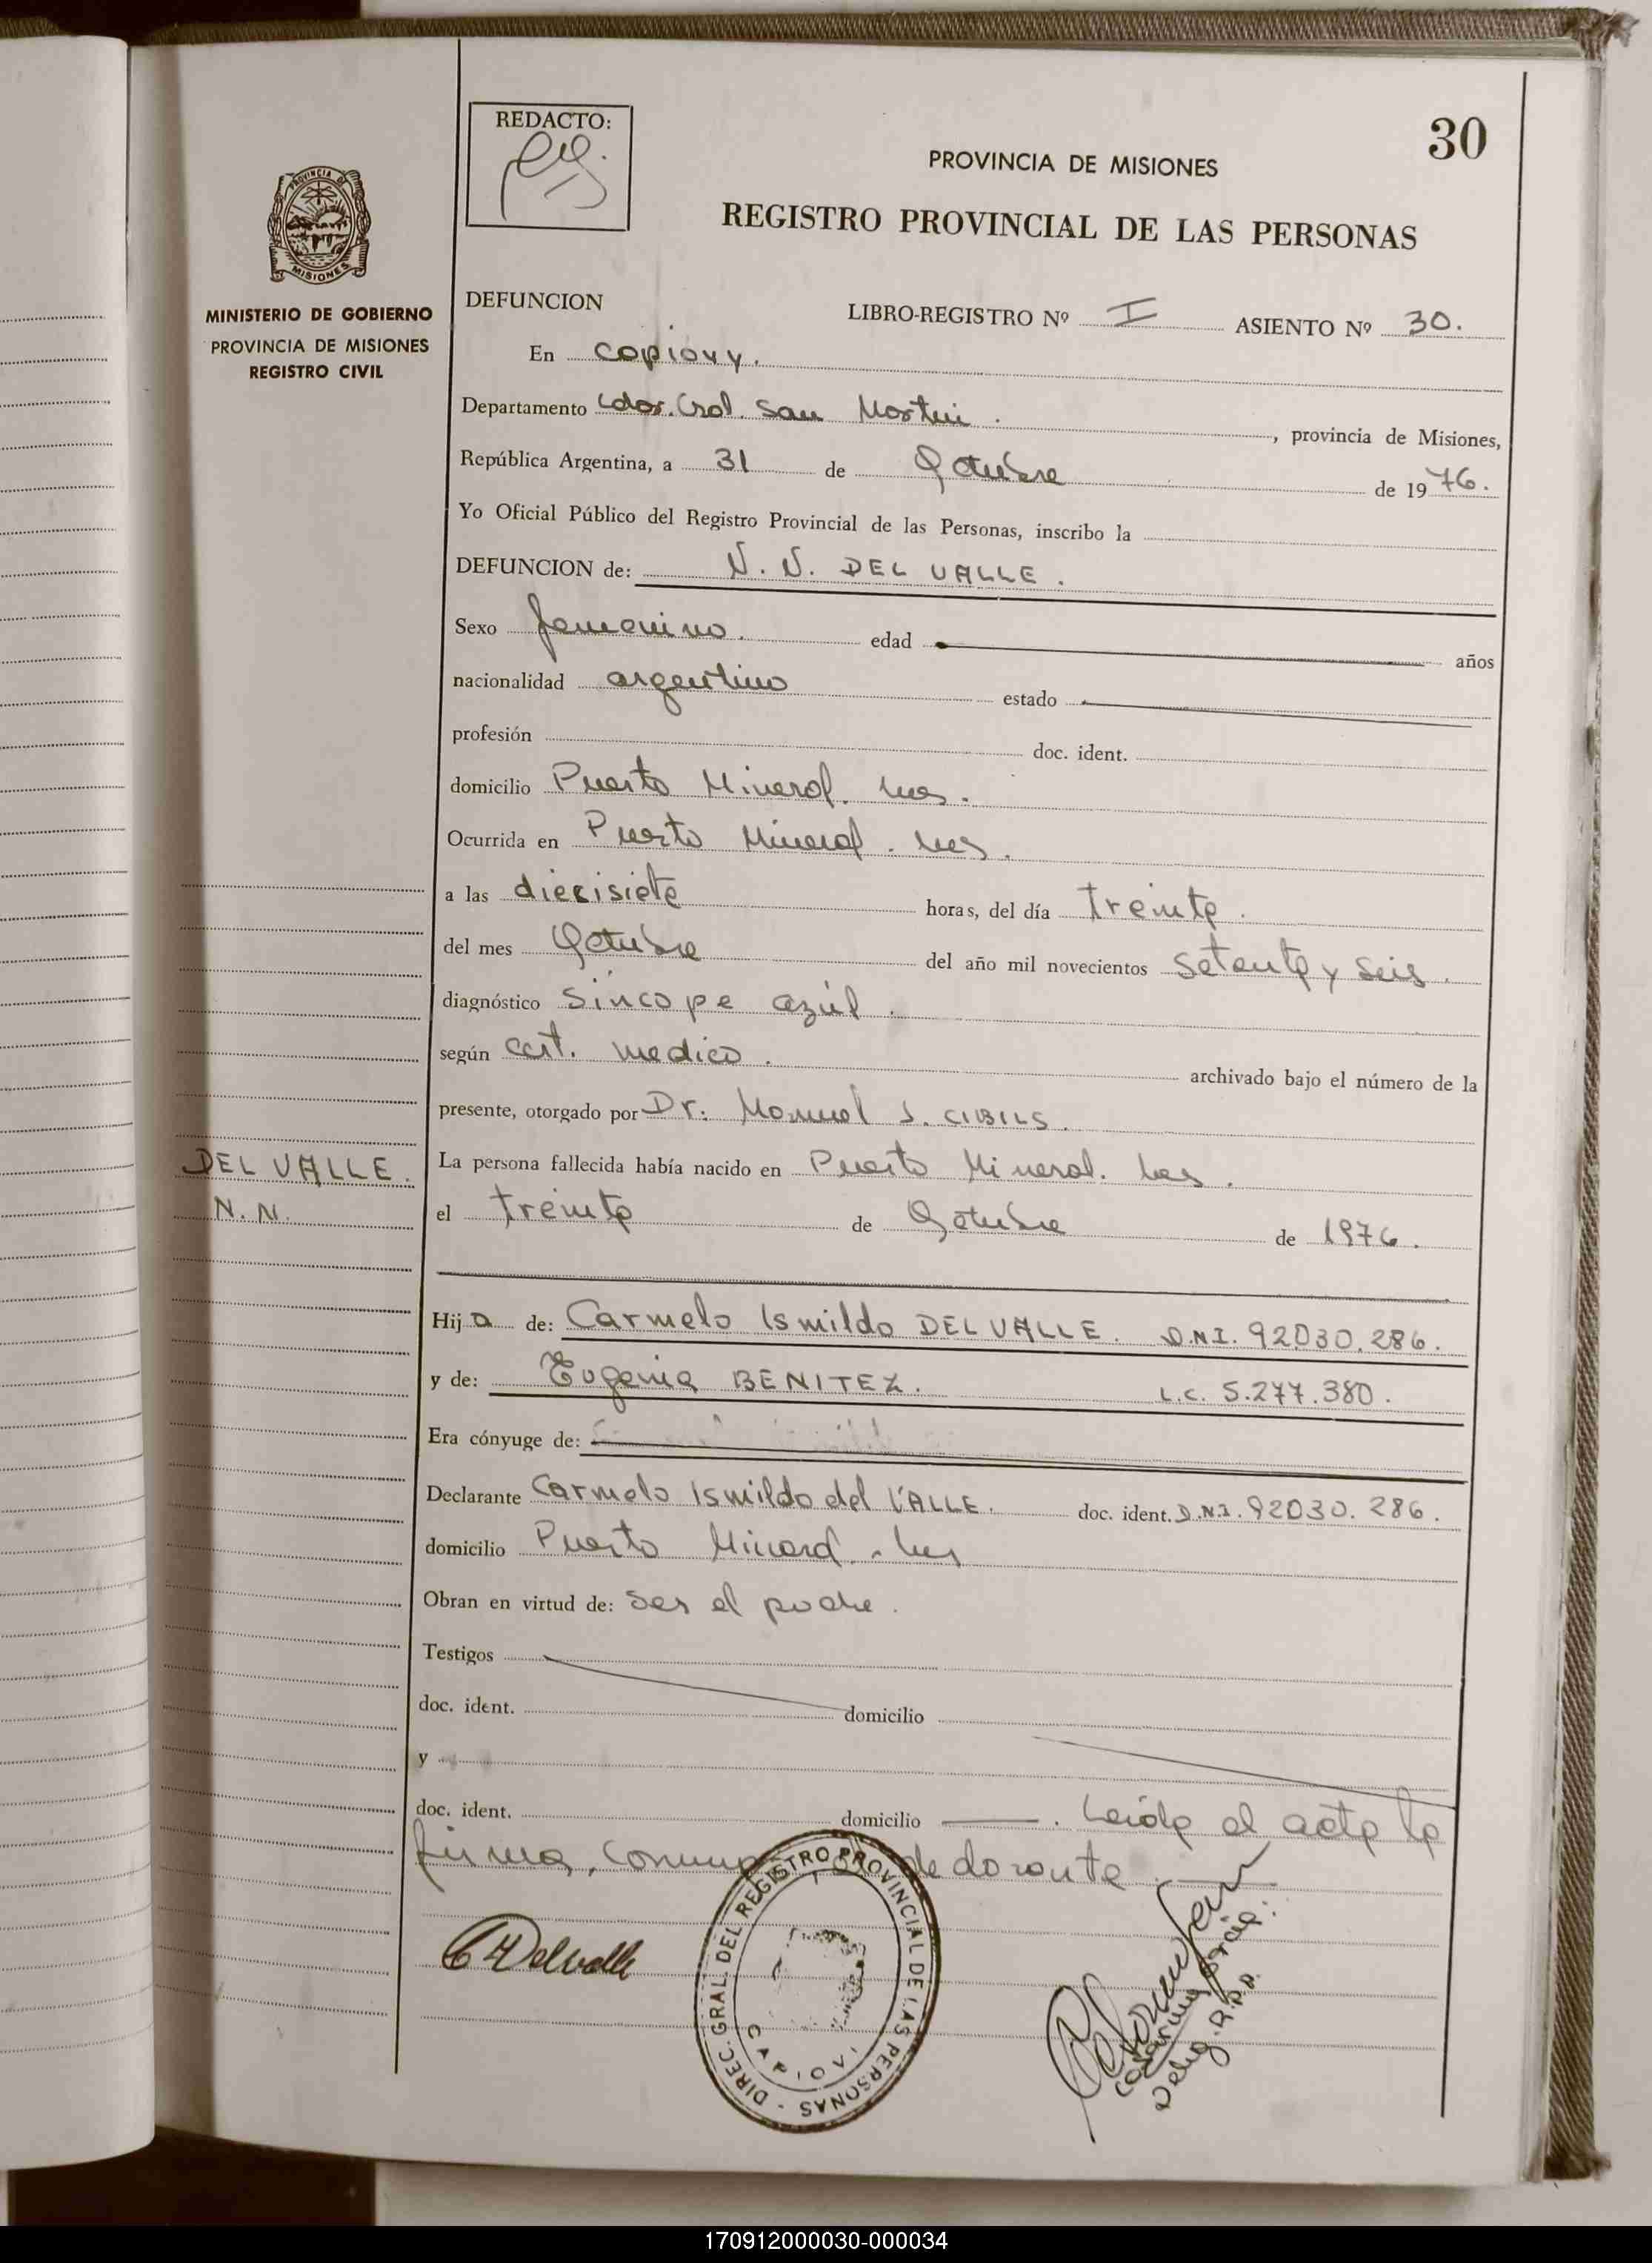 30
REDACTO:
PROVINCIA DE MISIONES
REGISTRO PROVINCIAL DE LAS PERSONAS
PROVINCIA DE
MISIONES
MINISTERIO DE GOBIERNO
PROVINCIA DE MISIONES
REGISTRO CIVIL
DEFUNCION LIBRO-REGISTRO Nº I ASIENTO Nº 30.
En Capiovy.
Departamento Ldor. Gral. San Martin. , provincia de Misiones,
República Argentina, a 31 de Octubre de 1976.
Yo Oficial Público del Registro Provincial de las Personas, inscribo la
DEFUNCION de: N. N. DEL VALLE.
Sexo femenino. edad años
nacionalidad argentina estado
profesión doc. ident.
domicilio Puerto Mineral. Mes.
Ocurrida en Puerto Mineral. Mes.
a las diecisiete horas, del día treinta.
del mes Octubre del año mil novecientos setenta y seis.
diagnóstico Síncope azúl.
según cert. medico. archivado bajo el número de la
presente, otorgado por Dr: Manuel J. CIBILS.
DEL VALLE.
N. N.
La persona fallecida había nacido en Puerto Mineral. Mes.
el treinta de Octubre de 1976.
Hija de: Carmelo Ismildo DEL VALLE. D.N.I. 92030.286.
y de: Eugenia BENITEZ. L.C. 5.277.380.
Era cónyuge de:
Declarante Carmelo Ismildo del VALLE. doc. ident. D.N.I. 92030.286.
domicilio Puerto Mineral. Mes
Obran en virtud de: ser el padre.
Testigos
doc. ident. domicilio
y
doc. ident. domicilio . Leída el acta la
firma, conmigo declarante.
C I Delvalle
DIREC. GRAL. DEL REGISTRO PROVINCIAL DE LAS PERSONAS -
CAPIOVI
Deleg. R.P.P.
170912000030-000034